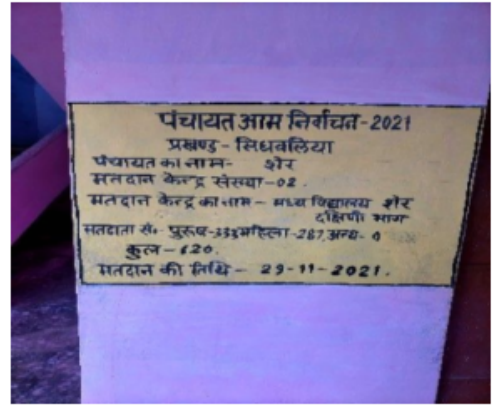 पंचायत आम निर्वाचन-2021
प्रखण्ड - सिधवलिया
पंचायत का नाम- शेर
मतदान केन्द्र संख्या-02.
मतदान केन्द्र का नाम- मध्य विद्यालय शेर
दक्षिणी भाग
मतदाता सं०- पुरुष-333 महिला-287, अन्य-0
कुल-620.
मतदान की तिथि- 29-11-2021.